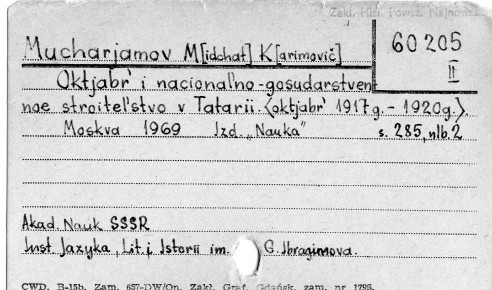 Zakł. Hist. Powsz. Najnowsz.
60205
II
Mucharjamov M[idchat] K[arimovič]
Oktjabŕ i nacionaľno-gosudarstven
noe stroiteľstvo v Tatarii. <oktjabŕ 1917g.-1920g.>.
Moskva 1969 Izd. „Nauka" s. 285, nlb. 2
Akad. Nauk SSSR
Inst. Jazyka, Lit. i Istorii im. G. Ibragimova.
CWD. B-15b. Zam. 657-DW/On. Zakł. Graf. Gdańsk, zam. nr 1795.